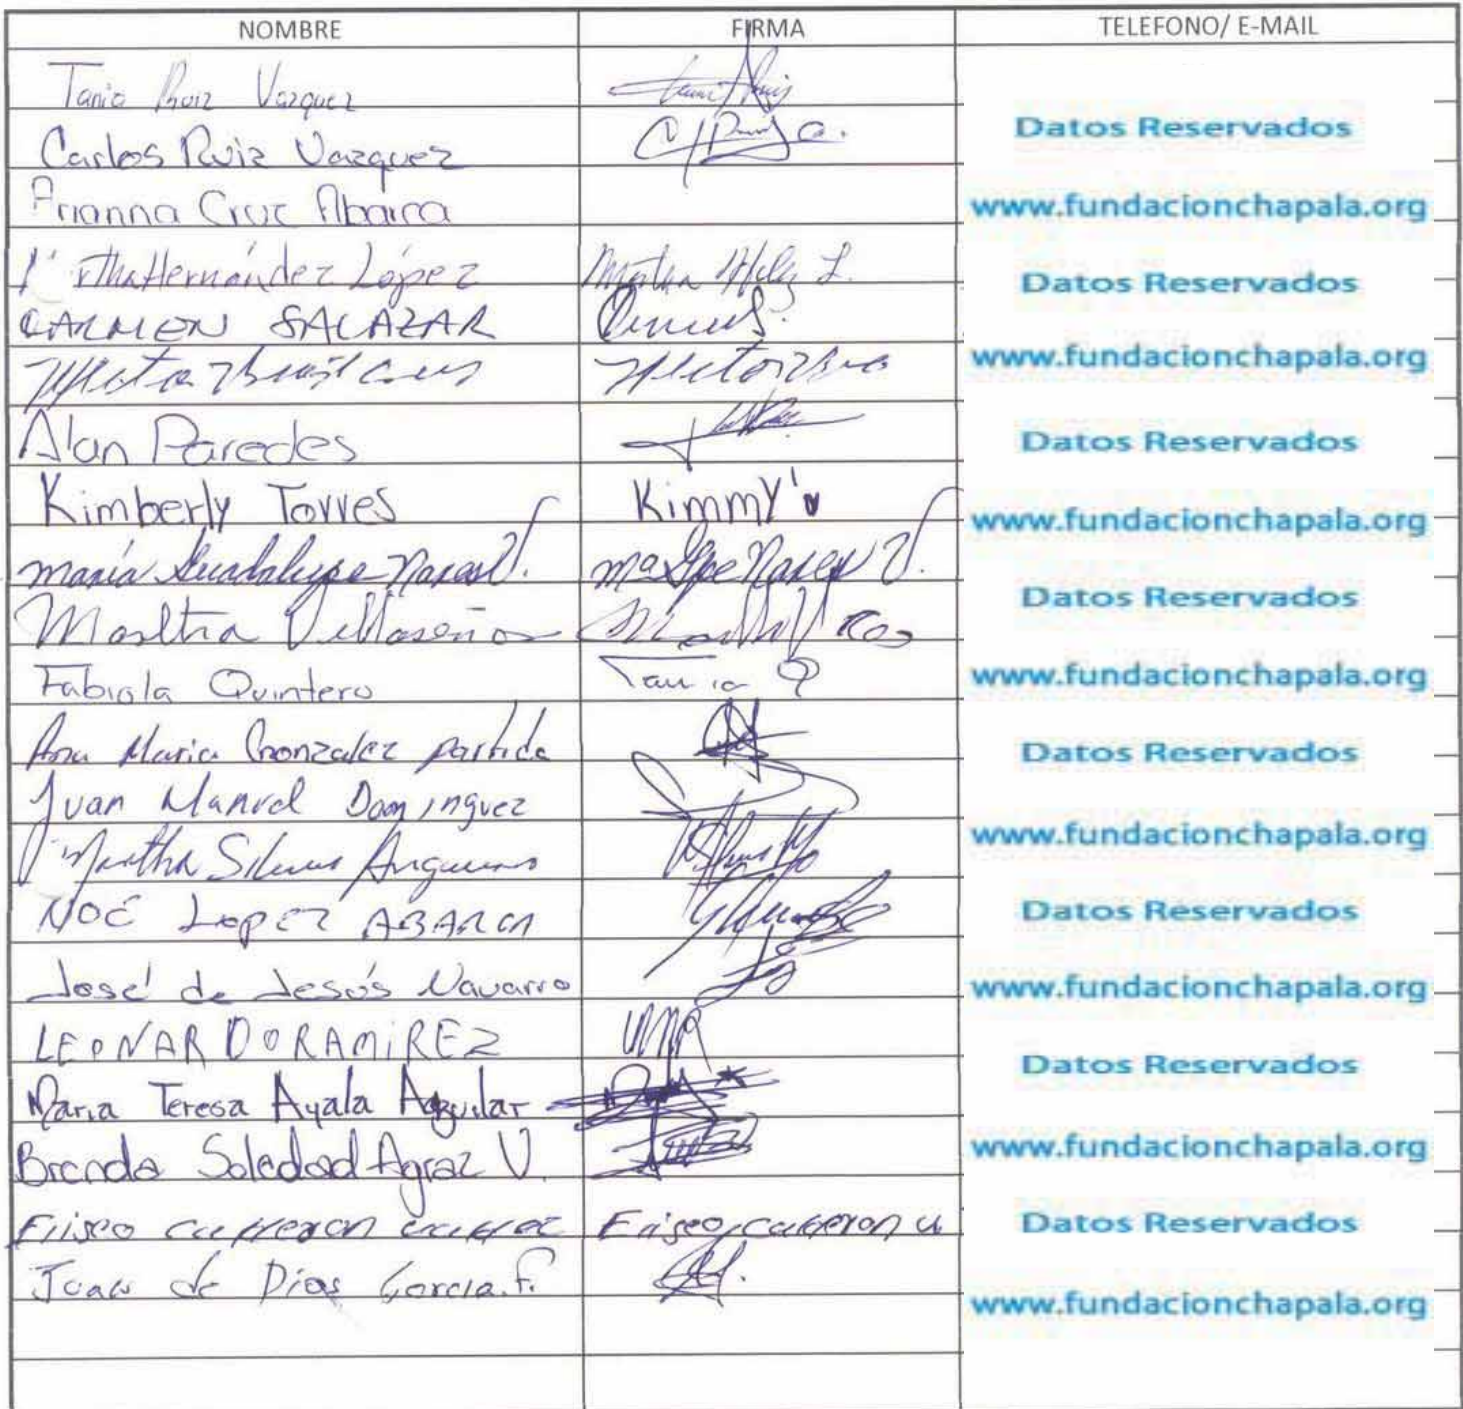 NOMBRE FIRMA TELEFONO/ E-MAIL
Tania Ruiz Vazquez
Carlos Ruiz Vazquez
Datos Reservados
Arianna Cruz Abarca
www.fundacionchapala.org
Hernández López Martha L.
Datos Reservados
CARMEN SALAZAR
www.fundacionchapala.org
Alan Paredes
Datos Reservados
Kimberly Torres Kimmy's
www.fundacionchapala.org
maría Guadalupe mª Gpe
Datos Reservados
Villaseñor
Fabiola Quintero
www.fundacionchapala.org
Ana Maria Gonzalez partida
Datos Reservados
Juan Manuel Dominguez
www.fundacionchapala.org
Martha
NOÉ LOPEZ ABARCA
Datos Reservados
José de Jesús Navarro
www.fundacionchapala.org
LEONARDO RAMiREZ
Datos Reservados
Maria Teresa Ayala Aguilar
Brenda Soledad Agraz V.
www.fundacionchapala.org
Datos Reservados
Juan de Dios Garcia.F.
www.fundacionchapala.org